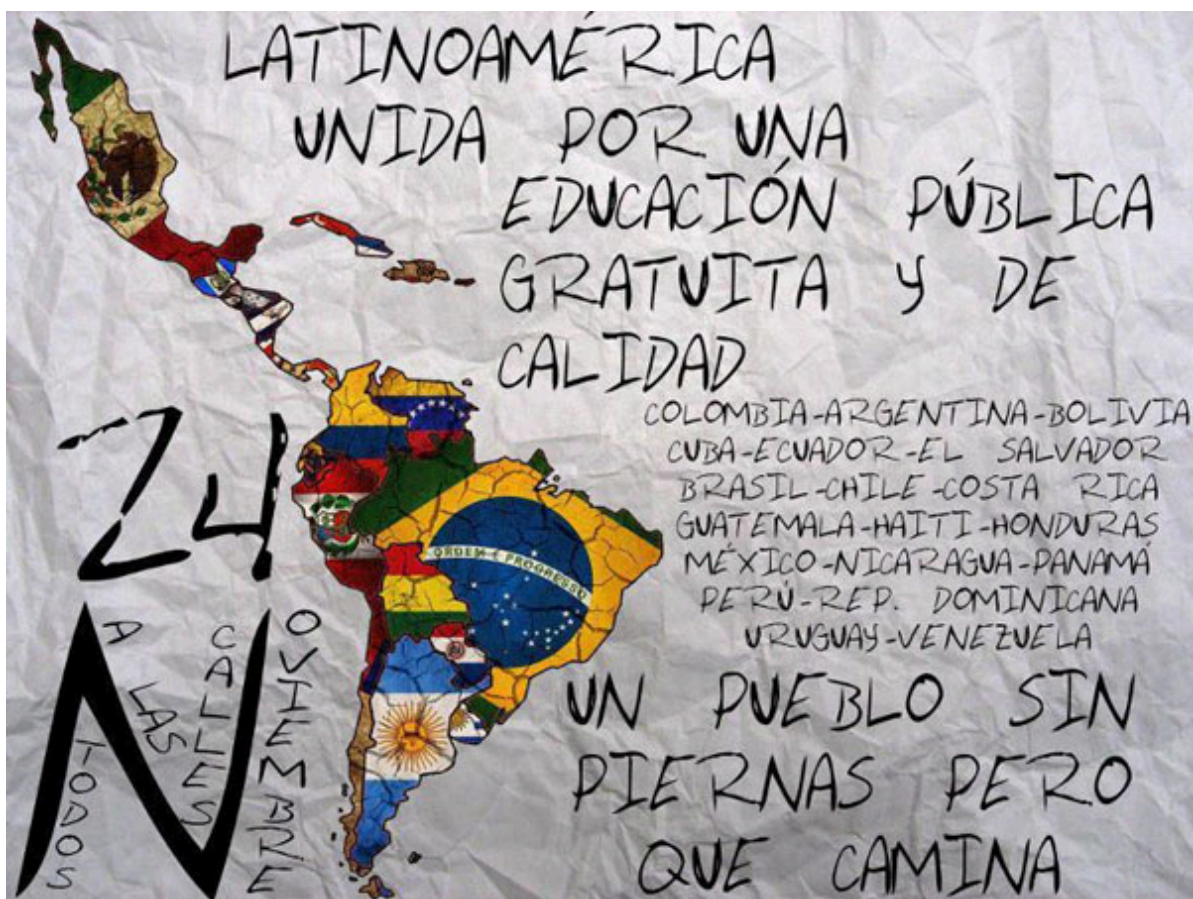 LATINOAMÉRICA
UNIDA POR UNA
EDUCACIÓN PÚBLICA
GRATUITA Y DE
CALIDAD
COLOMBIA-ARGENTINA-BOLIVIA
CUBA-ECUADOR-EL SALVADOR
BRASIL-CHILE-COSTA RICA
GUATEMALA-HAITI-HONDURAS
MÉXICO-NICARAGUA-PANAMÁ
PERÚ-REP. DOMINICANA
URUGUAY-VENEZUELA
24
NOVIEMBRE
TODOS
A LAS
CALLES
ORDEM E PROGRESSO
UN PUEBLO SIN
PIERNAS PERO
QUE CAMINA